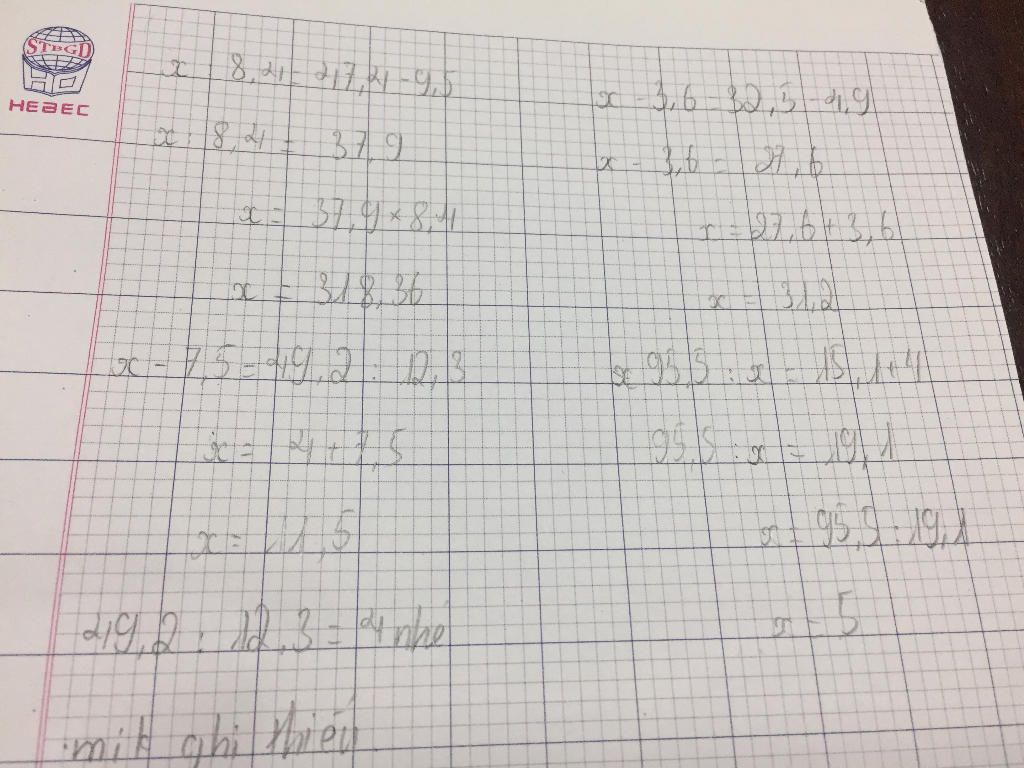 STBGD
HEBEC
x : 8,4 = 47,4 - 9,5
x : 8,4 = 37,9
x = 37,9 × 8,4
x = 318,36
x - 7,5 = 49,2 : 12,3
x = 4 + 7,5
x = 11,5
49,2 : 12,3 = 4 nhé
mik ghi thiếu
x - 3,6 = 32,5 - 4,9
x - 3,6 = 27,6
x = 27,6 + 3,6
x = 31,2
95,5 : x = 15,1 + 4
95,5 : x = 19,1
x = 95,5 : 19,1
x = 5